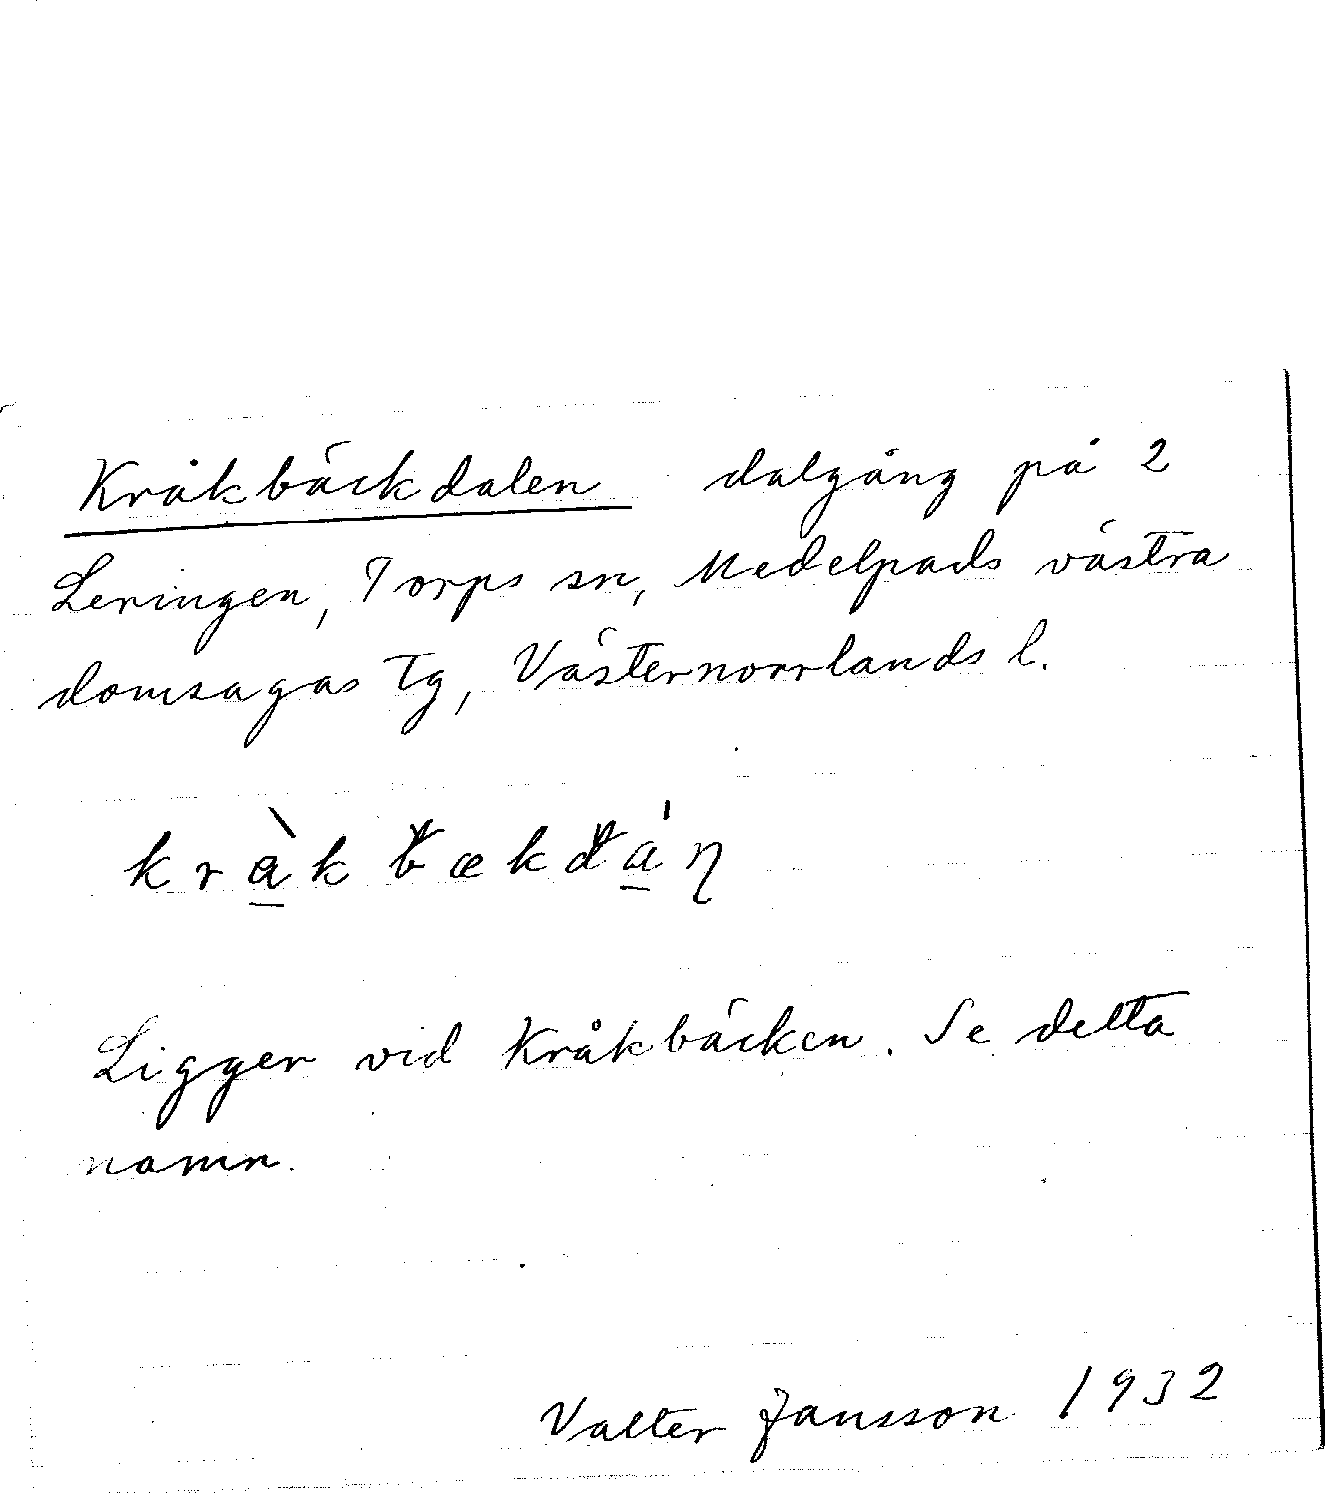 Kråkbäckdalen dalgång på 2
Leringen, Torps sn, Medelpads västra
domsagas tg, Västernorrlands l.
Ligger vid Kråkbäcken. Se detta
namn.
Valter Jansson 1932